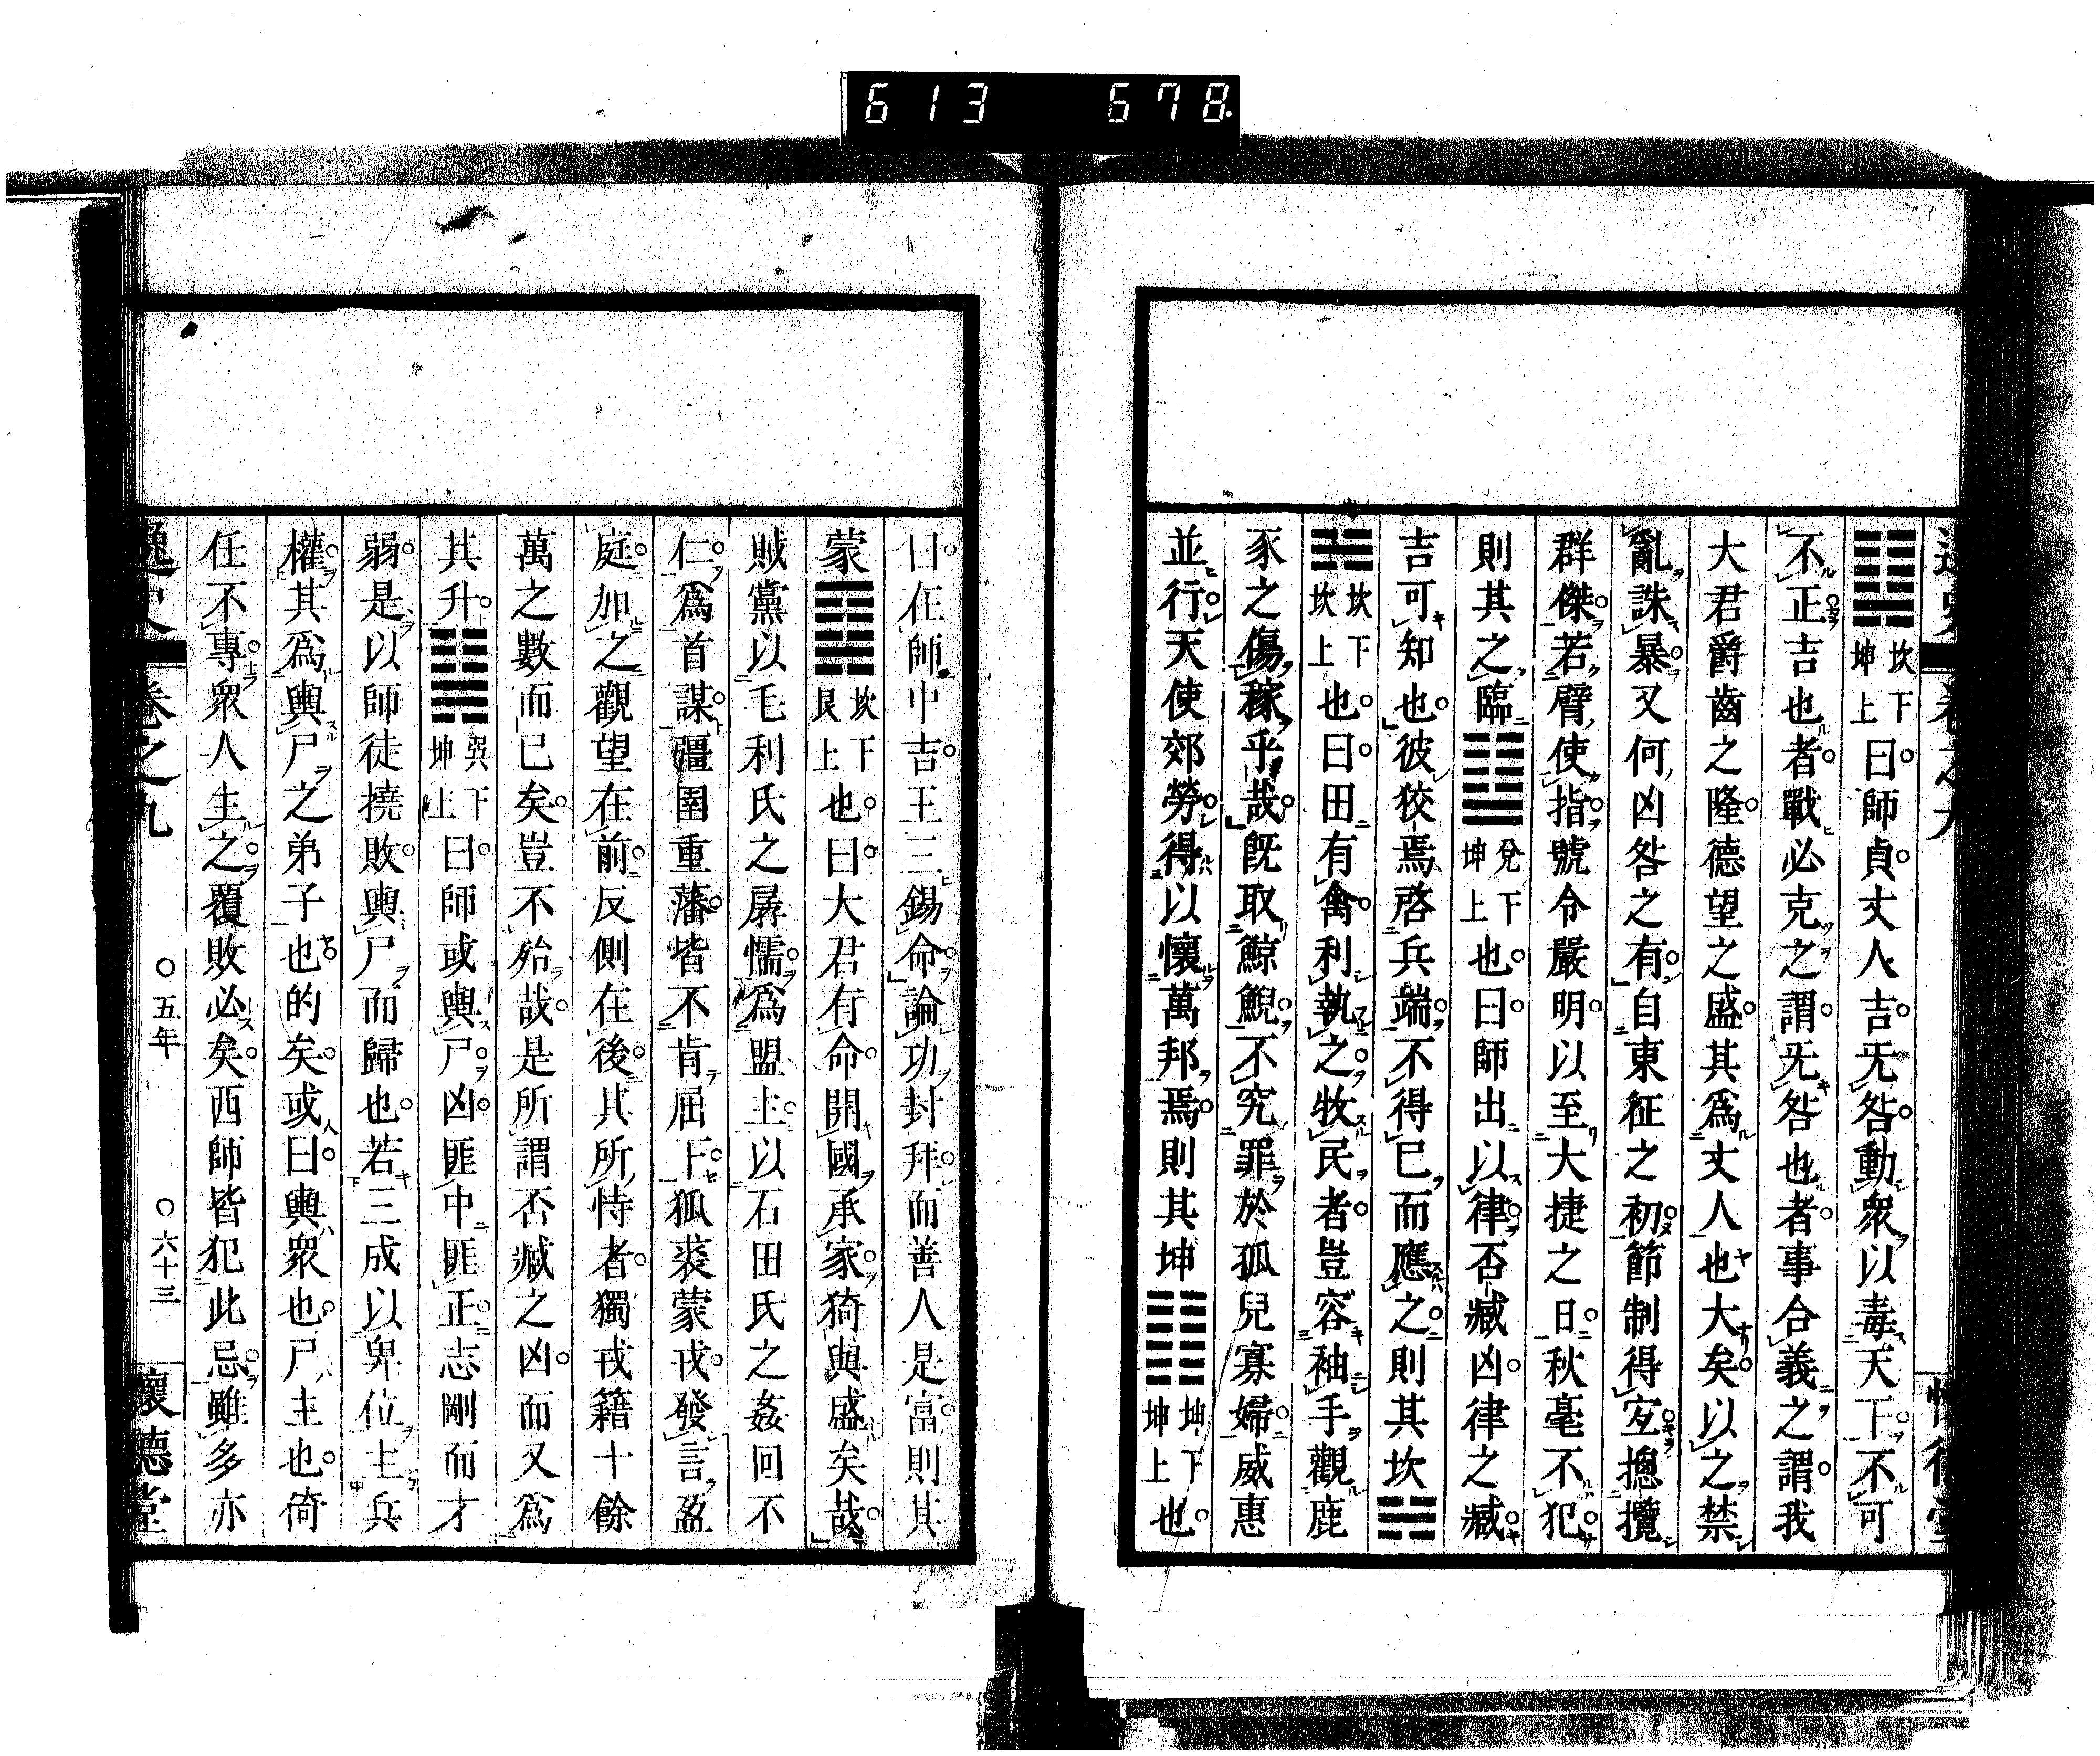 613 678
䷆坎下坤上曰師貞丈人吉旡咎動衆以毒天下不可
不正吉也者戰必克之謂旡咎也者事合義之謂我
大君爵齒之隆德望之盛其爲丈人也大矣以之禁
亂誅暴又何凶咎之有自東征之初節制得宜摠攬
群傑若臂使指號令嚴明以至大捷之日秋毫不犯
則其之臨䷒兌下坤上也曰師出以律否臧凶律之臧
吉可知也彼狡焉啓兵端不得已而應之則其坎
䷜坎下坎上也曰田有禽利執之牧民者豈容袖手觀鹿
豕之傷稼乎哉旣取鯨鯢不究罪於孤兒寡婦威惠
並行天使郊勞得以懷萬邦焉則其坤䷁坤下坤上也
曰在師中吉王三錫命論功封拜而善人是富則其
蒙䷃坎下艮上也曰大君有命開國承家猗與盛矣哉
賊黨以毛利氏之孱懦爲盟主以石田氏之姦回不
仁爲首謀彊圉重藩皆不肯屈下狐裘蒙戎發言盈
庭加之觀望在前反側在後其所恃者獨戎籍十餘
萬之數而已矣豈不殆哉是所謂否臧之凶而又爲
其升䷭巽下坤上曰師或輿尸凶匪中匪正志剛而才
弱是以師徒撓敗輿尸而歸也若三成以卑位主兵
權其爲輿尸之弟子也的矣或曰輿衆也尸主也倚
任不專衆人主之覆敗必矣西師皆犯此忌雖多亦
逸史 卷之九 ○五年 ○六十三 懷德堂